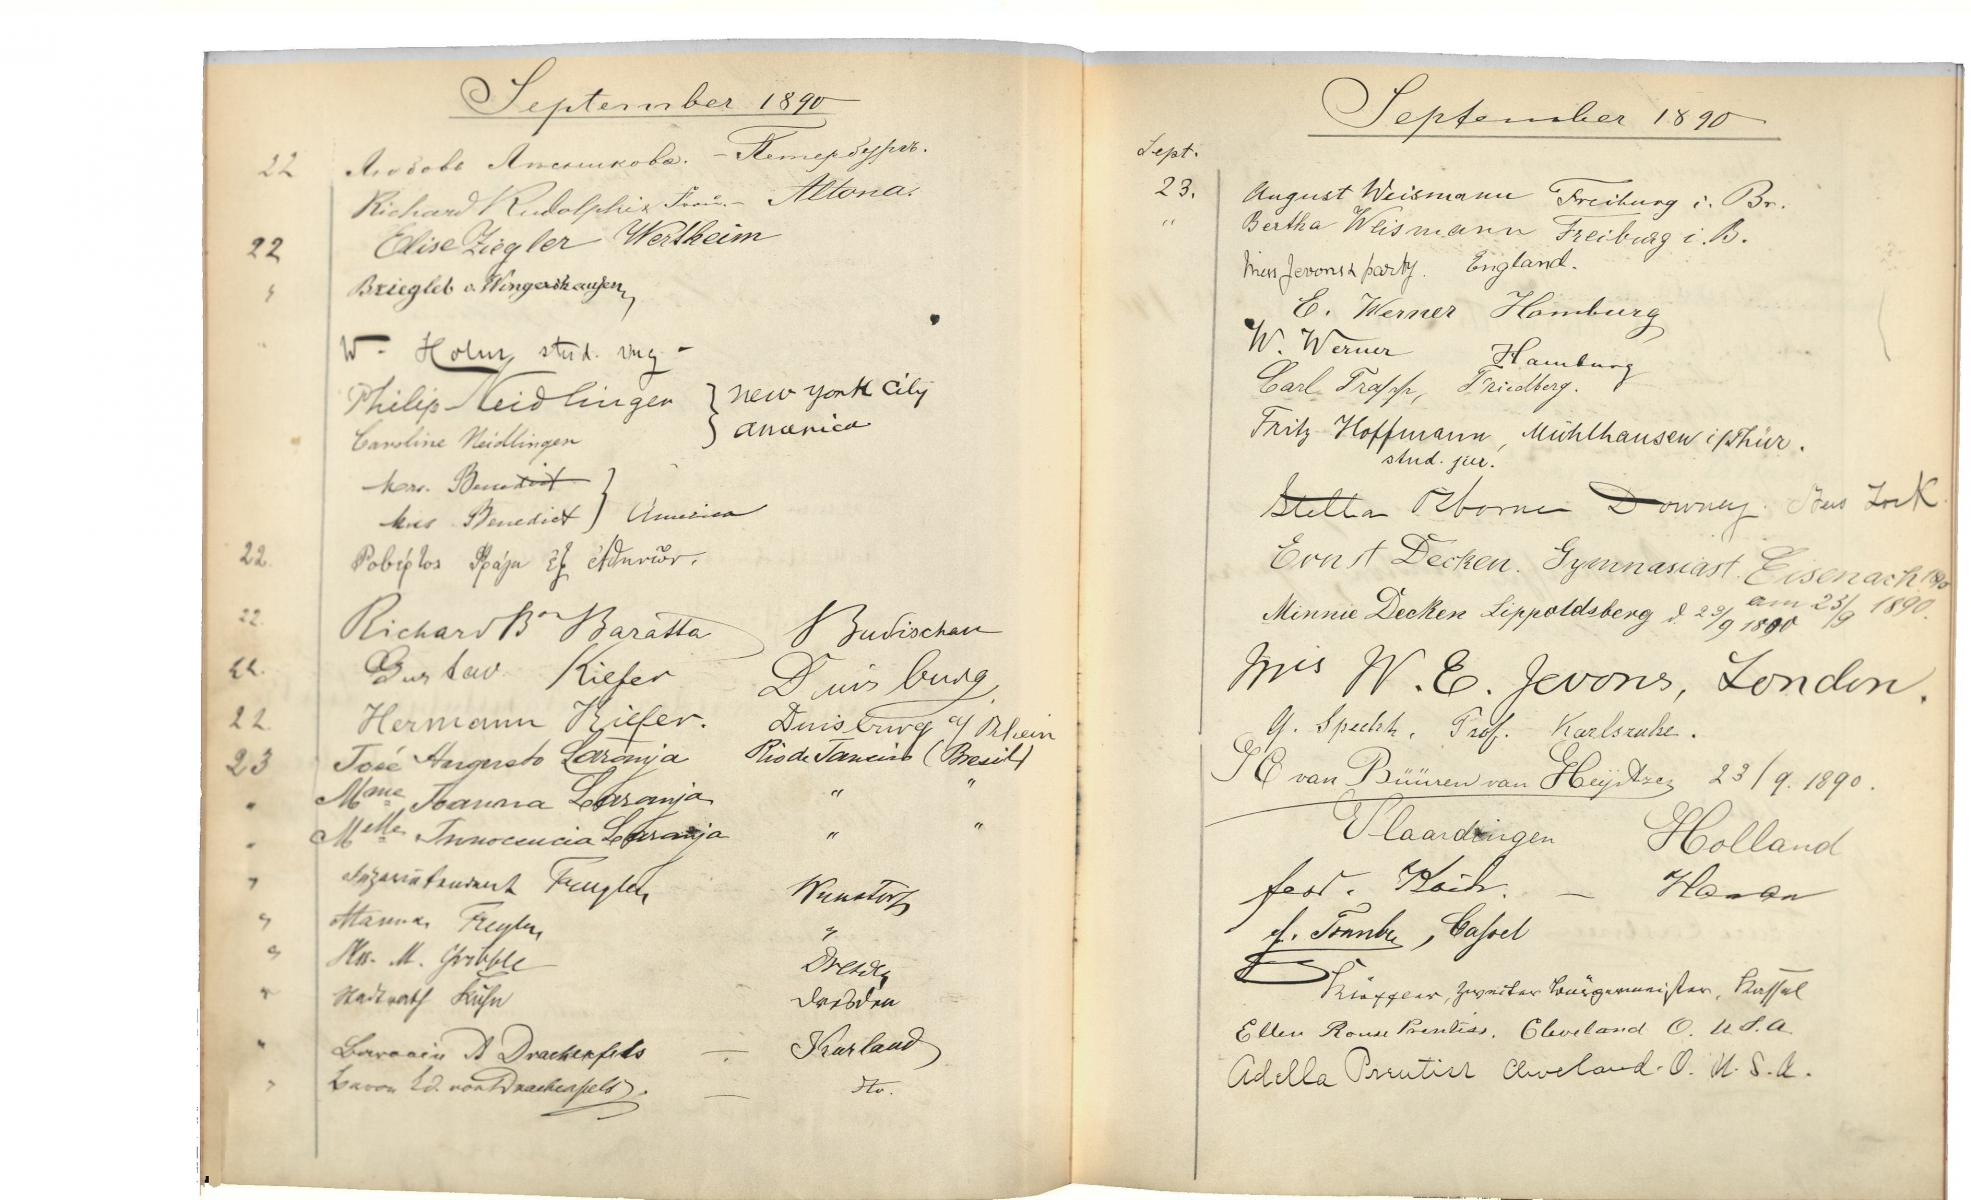 September 1890
22 Любовь – Петербургъ.
Richard Rudolphi & Frau. – Altona.
22 Elise Ziegler Wertheim
" Briegleb v. Wingershausen
W. Holm, stud.
Philip Neidlinger } New York City
Caroline Neidlinger } America
Mrs. Benedict }
Miss Benedict } America
22 Ροβέρτος ἐξ Ἀθηνῶν.
22. Richard Bon Baratta Budischau
22. Gustav Kiefer Duisburg
22 Hermann Kiefer. Duisburg a/ Rhein
23 José Augusto Laranja Rio de Janeiro (Bresil)
" Mme Joanna Laranja " "
" Melle Innocencia Laranja " "
" Superintendent Wunstorf
" Hanna "
" M. Gribble Dresden
" Stadtrath Kühn Dresden
" Baronin A Drachenfels — Kurland
" Baron Ed. von Drachenfels. — do.
September 1890
Sept.
23. August Weismann Freiburg i. Br.
" Bertha Weismann Freiburg i. B.
Miss Jevons & party. England.
E. Werner Hamburg
W. Werner Hamburg
Carl Trapp, Friedberg.
Fritz Hoffmann, Mühlhausen i/Thür.
stud. jur.
Stella Osborne Downey. New York
Ernst Decken. Gymnasiast. Eisenach 1890
am 23/9 1890.
Minnie Decken Lippoldsberg d. 23/9 1890
Mrs W. E. Jevons, London.
G. Specht, Prof. Karlsruhe.
van Büüren van Heijst 23/9. 1890.
Vlaardingen Holland
Ferd. Koch. — Hanau
Cassel
Klöffler, zweiter Bürgermeister, Kassel
Ellen Rouse Prentiss. Cleveland O. U.S.A
Adella Prentiss Cleveland. O. U. S. A.